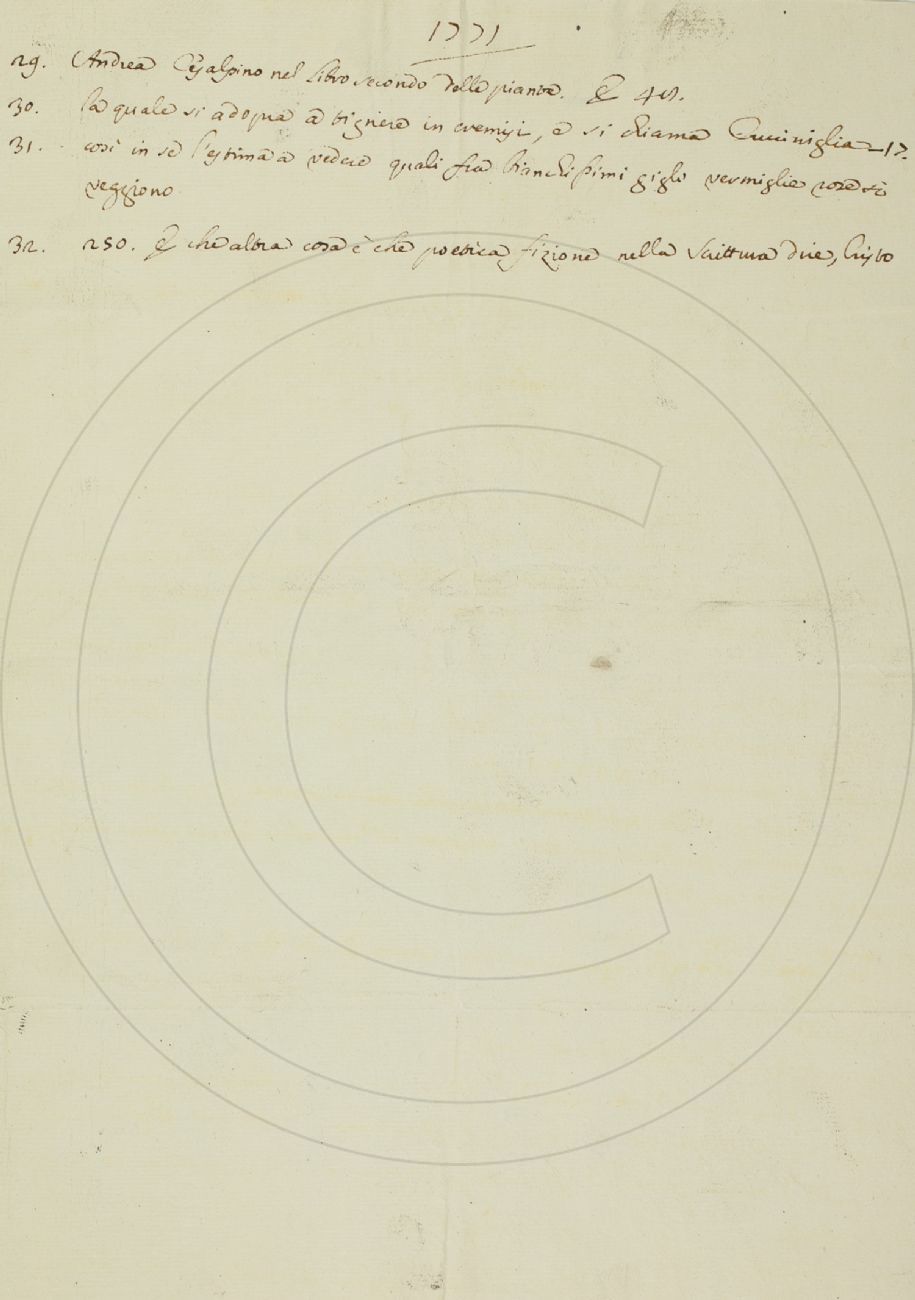 1771
29. Andrea Cesalpino nel Libro secondo delle piante. E 418.
30. la quale si adopra a tignere in cremisi, e si chiama Cucciniglia - 17.
31. così in se l'estima a vedere quali fra bianchissimi gigli vermiglie rose si
veggiono
32. 250. E che altra cosa è che poetica fizione nella Scrittura dire, Cristo